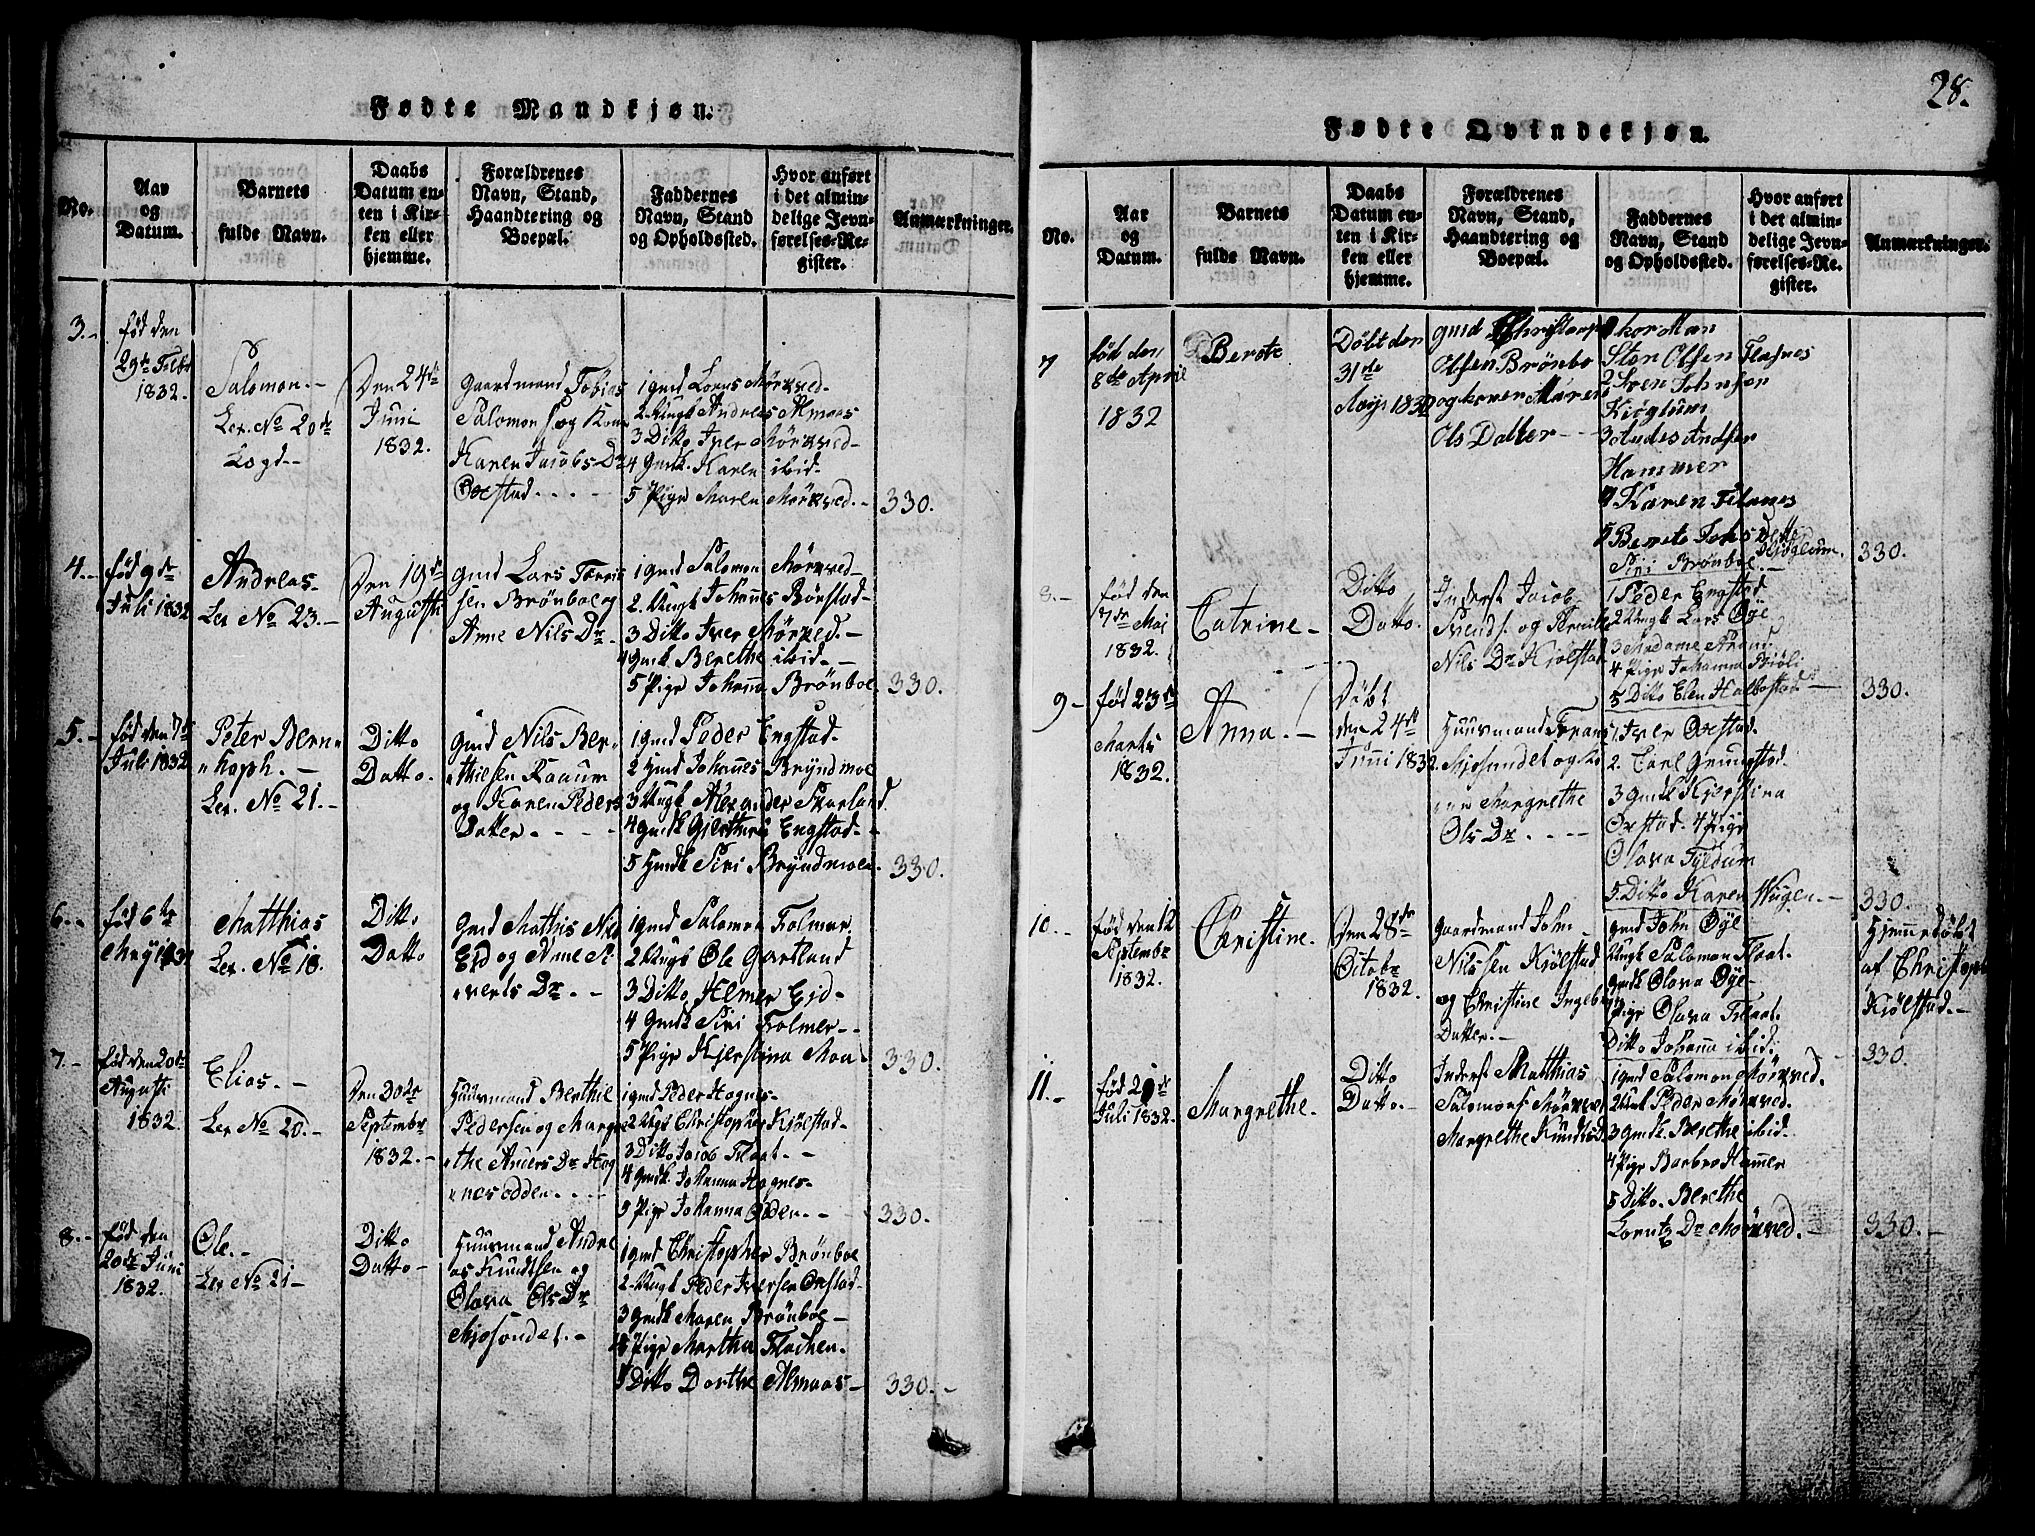 28.
Fødte Mandkjøn.
No.
Aar
og
Datum.
Barnets
fulde Navn.
Daabs
Datum en-
ten i Kir-
ken eller
hjemme.
Forældrenes
Navn, Stand,
Haandtering og
Boepæl.
Faddernes
Navn, Stand
og Opholdssted.
Hvor anført
i det almin-
delige Jevn-
førelses-Re-
gister.
Anmærkninger.
3.-
fød den
29de Febr
1832.
Salomon.-
Ler. No 20de
Den 24de
Juni
1832.
Gaardmand Tobias
Salomons. og Kone
Karen Jacobs Dr
1 gmd Lorns Mørkved-
2. Ungk Andreas Almaas
3 Ditto Iver Mørkved-
4 Gmdk. Karen ibid-
5 Pige Maren Mørkved.-
330.
4.-
fød 9de
Juli 1832
Andreas-
Ler No 23.-
Den 19de
Augusti
gmd Lars Torris
sen Brönboe og
Anne Nils Dr.-
1 gmd Salomon Mørkved-
2. Ungk Johannes Borstad-
3 Ditto Iver Mørkved.-
4 Gmdk Berethe ibid.-
5 Pige Johanna Brönboe
330.
5.-
fød den 7de
Juli 1832
Peter Bern-
hoph.-
Ler. No 21.-
Ditto
Datto.
Gmd Nils Ber-
thelsen Raaum
og Karen Peders
Datter.- - - -
1 gmd Peder Engstad-
2 Hmd Johannes Bryndmoe
3 Ungk Alexander Skarland
4 Gmdk Engstad-
5 Hmdk Siri Bryndmoen.
330.
6.-
fød 6te
May 1831
Matthias
Ler. No 18.
Ditto
Datto
Gmd Mathis Nils
Eid og Anne Si-
verts Dr.-
1 gmd Salomon Folmer.
2 Ungk Ole Gartland
3 Ditto Helmer Eid-
4 Gmdk Siri Folmer-
5 Pige Kjerstina Moa-
330.
7.-
fød den 20de
Augusti
1832.
Elias.-
Ler No 20.-
Den 30te
Septembr
1832.-
Huusmand Berthel
Pedersen og Margre-
the Anders Dr Hog
nesodden.- - -
1 gmd Peder Hognes-
2 Ungk Christopher Kjölstad-
3 Ditto Jacob Flaat.-
4 Gmdk Johanna Hognes-
5 Pige Johanna Odden.-
330.
8.-
fød den
20de Juni
1832.
Ole.-
Ler No 21-
Ditto
Datto-
Huusmand Andre
as Knudtsen og
Olava Ols Dr
Mjosundet.-
1 gmd Christopher Brönboe
2. Ungk Peder Iversen Oxstad-
3 Gmdk Maren Brönboe-
4 Pige Martha Flasken-
5 Ditto Dorthe Almaas-
330.-
Fødte Qvindekjøn.
No.
Aar
og
Datum.
Barnets
fulde Navn.
Daabs
Datum en-
ten i Kir-
ken eller
hjemme.
Forældrenes
Navn, Stand,
Haandtering og
Boepæl.
Faddernes
Navn, Stand
og Opholdssted.
Hvor anført
i det almin-
delige Jevn-
førelses-Re-
gister.
Anmærkninger.
7
fød den
8de April
1832
Berote
Döbt den
31de
May 1832
gmd Christoph
Olsen Brönbo
og kone Maren
Ols Datter--
Sten Olsen Flasnes
2 Sven Johnsen
Kjøglum
3 Andes Andsen
Hammer
4 Karen Flasnes
5 Berete Johs Datte
Kjøglum.
Siri Brönboe.-
330.
8.-
fød den
7de Mai
1832.
Catrine-
Ditto
Datto.
Inderst Jacob
Svends. og Pernille
Nils Dr Kjolstad
1 Peder Engstad
2 Ungk Lars Øye
3 Madame
4 Pige Johanna Bjöli
5 Ditto Elen Halbostad-
330.
9-
fød 23de
Marts
1832.
Anna.-
Döbt
den 24de
Juni 1832.
Huusmand Frans
Mjosundet og Ko
ne Margrethe
Ols Dr.- - -
1 Iver Oxstad.
2. Carl Grungstad.
3 Gmdk Kjerstina
Oxstad. 4 Pige
Olava Fyldum
5. Ditto Karen Wiigen.-
330.
10.-
fød den 12
Septembr
1832.
Christine.
Den 28de
Octobr
1832.
Gaardmand John
Nilssen Kjölstad
og Christine Ingebr
Datter.-
gmd John Øye
Ungk Salomon Flaat.
Gmdk Olava Øye-
Pige Olava Flaat.
Ditto Johanna ibid.
330.
Hjemmedöbt
af Christoph
Kjölstad.-
11.-
fød
Juli 1832.
Margrethe.
Ditto
Datto.-
Inderst Matthias
Salomons. Mørkved
Margrethe Knudtsd.
1 gmd Salomon Mørkved.
2 Ungk Peder Mørkved.
3 Gmdk. Berethe ibid-
4 Pige Barbro Hammer
5 Ditto. Berethe
Lorntz Dr Mørkved.-
330.-